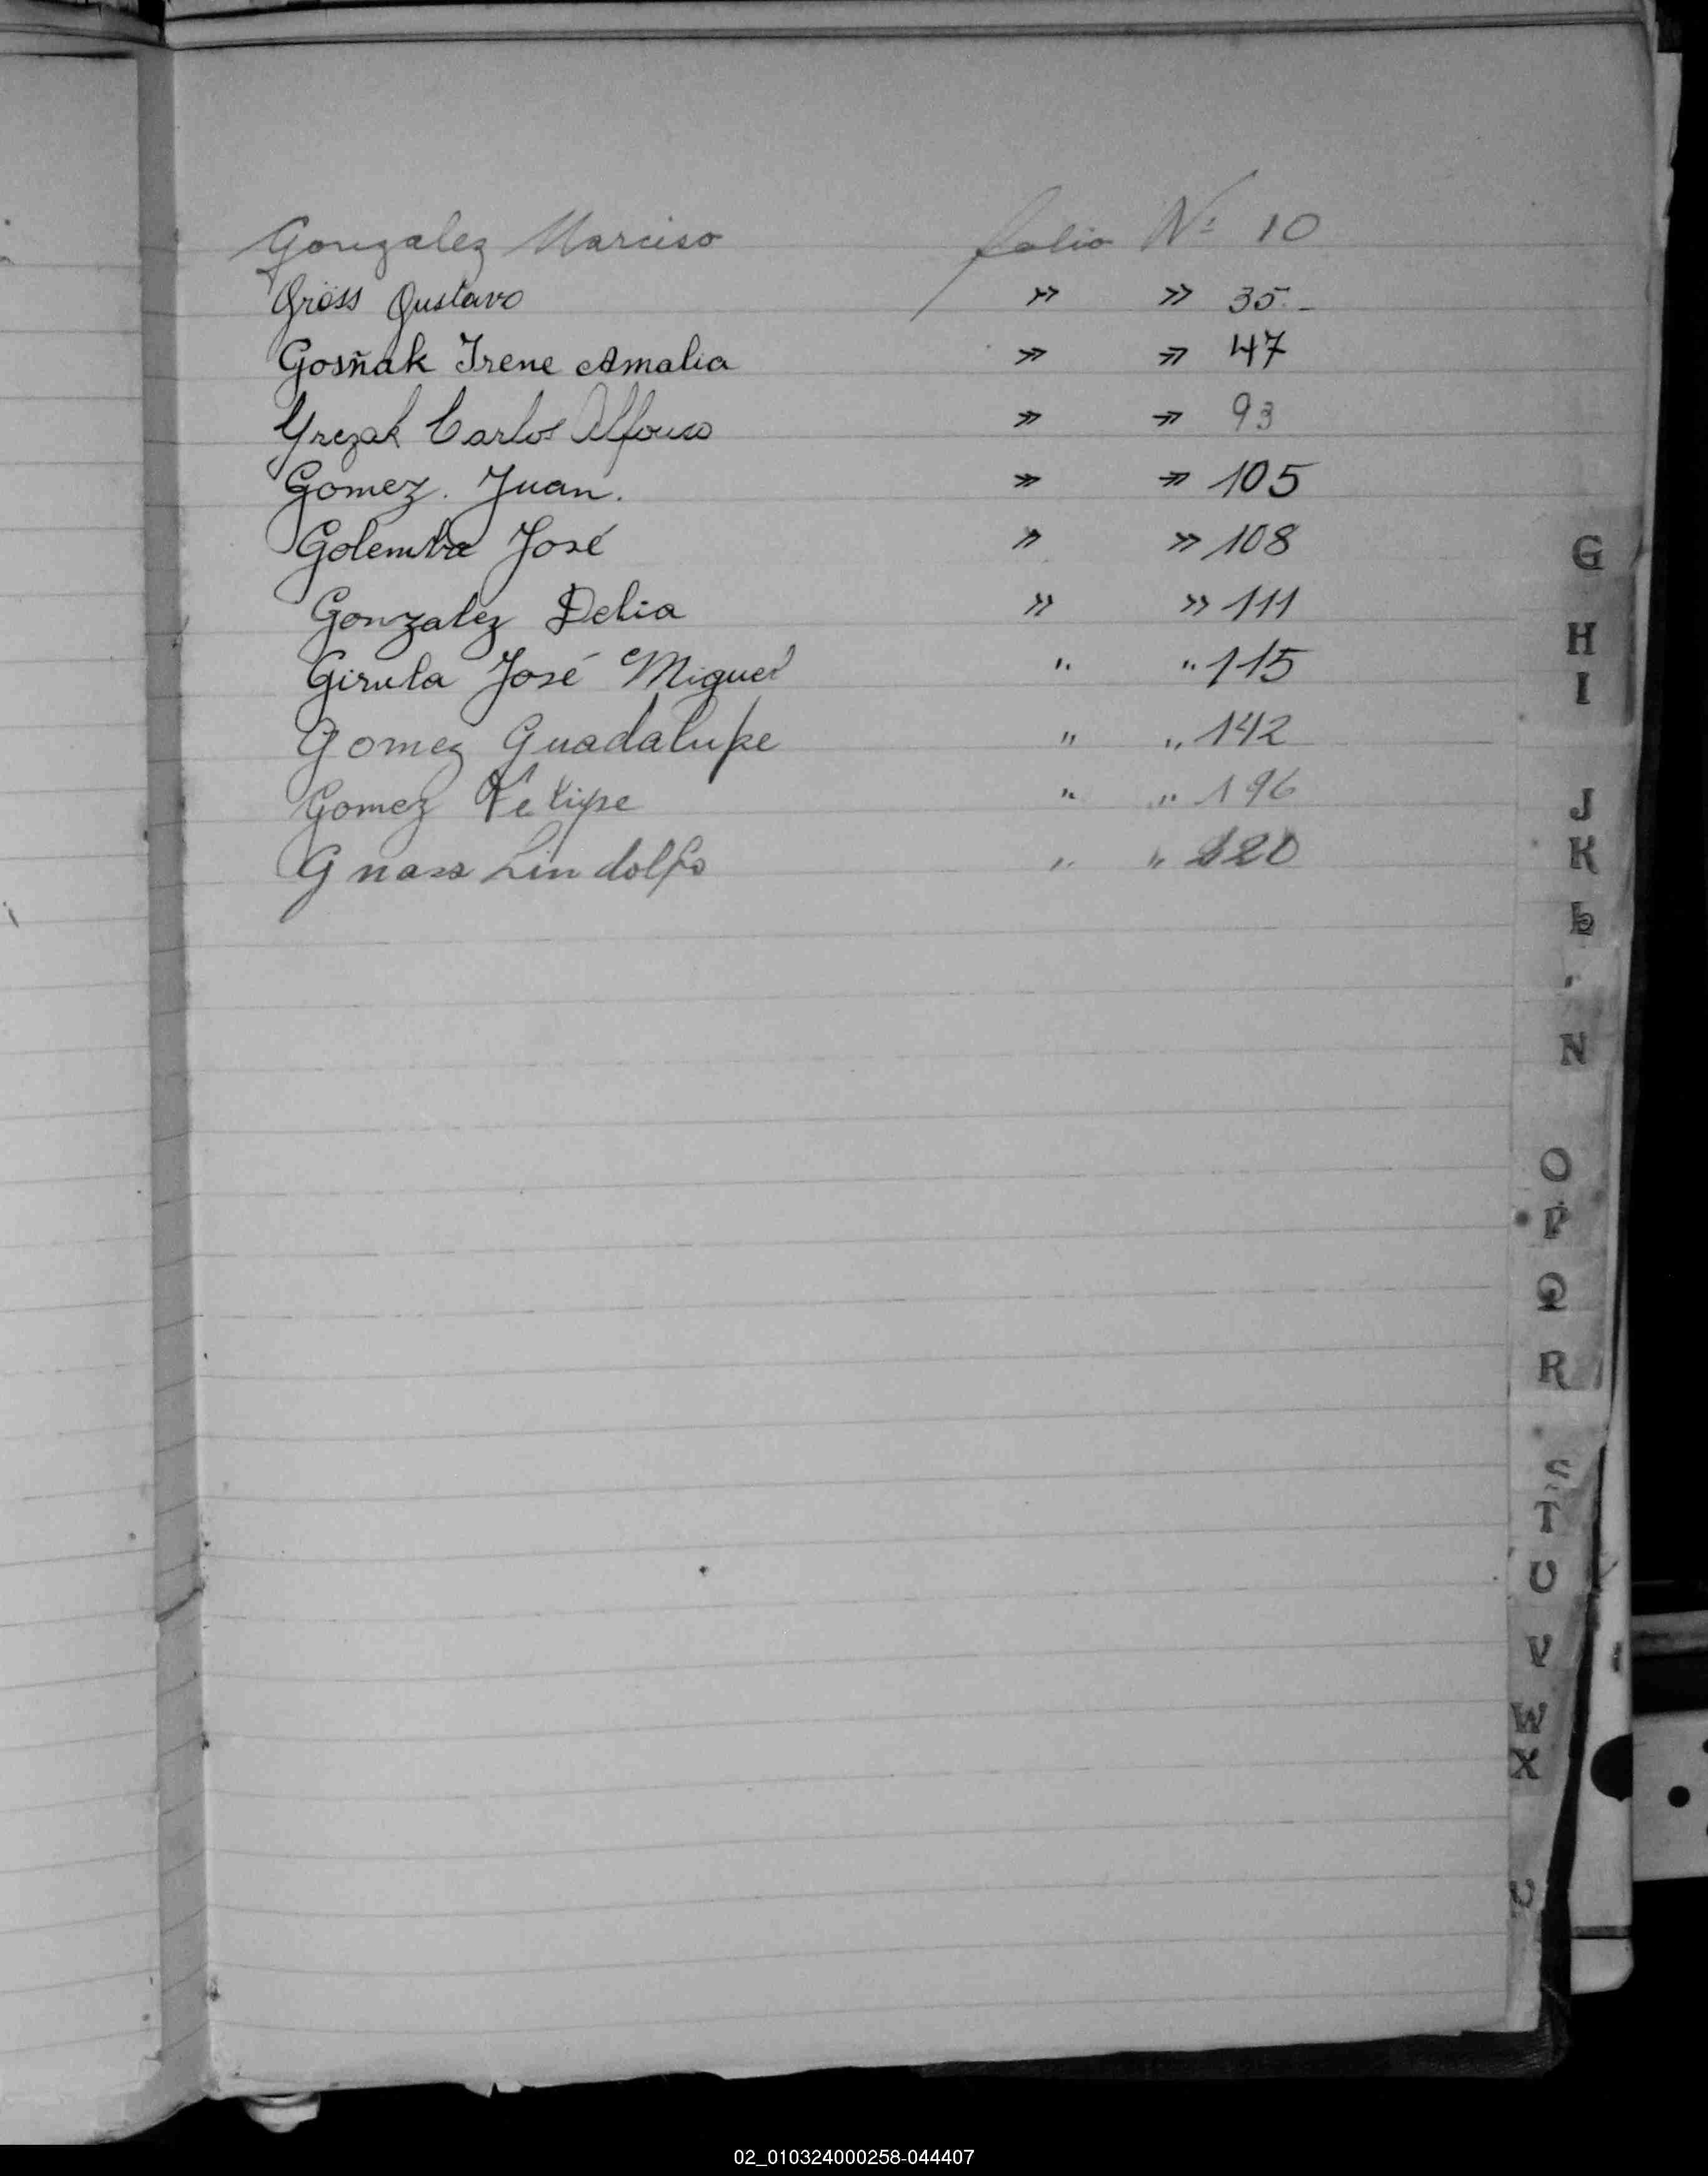 Gonzalez Narciso folio Nº 10
Gröss Gustavo » » 35.-
Gosñak Irene Amalia » » 47
Grezak Carlos Alfonso » » 93
Gomez. Juan. » » 105
Golemba José » » 108
Gonzalez Delia » » 111
Girula José Miguel " " 115
Gomez Guadalupe " " 142
Gomez Felipe " " 196
Gnass Lindolfo " " 220
G
H
I
J
K
N
O
P
Q
R
S
T
U
V
W
X
02_010324000258-044407